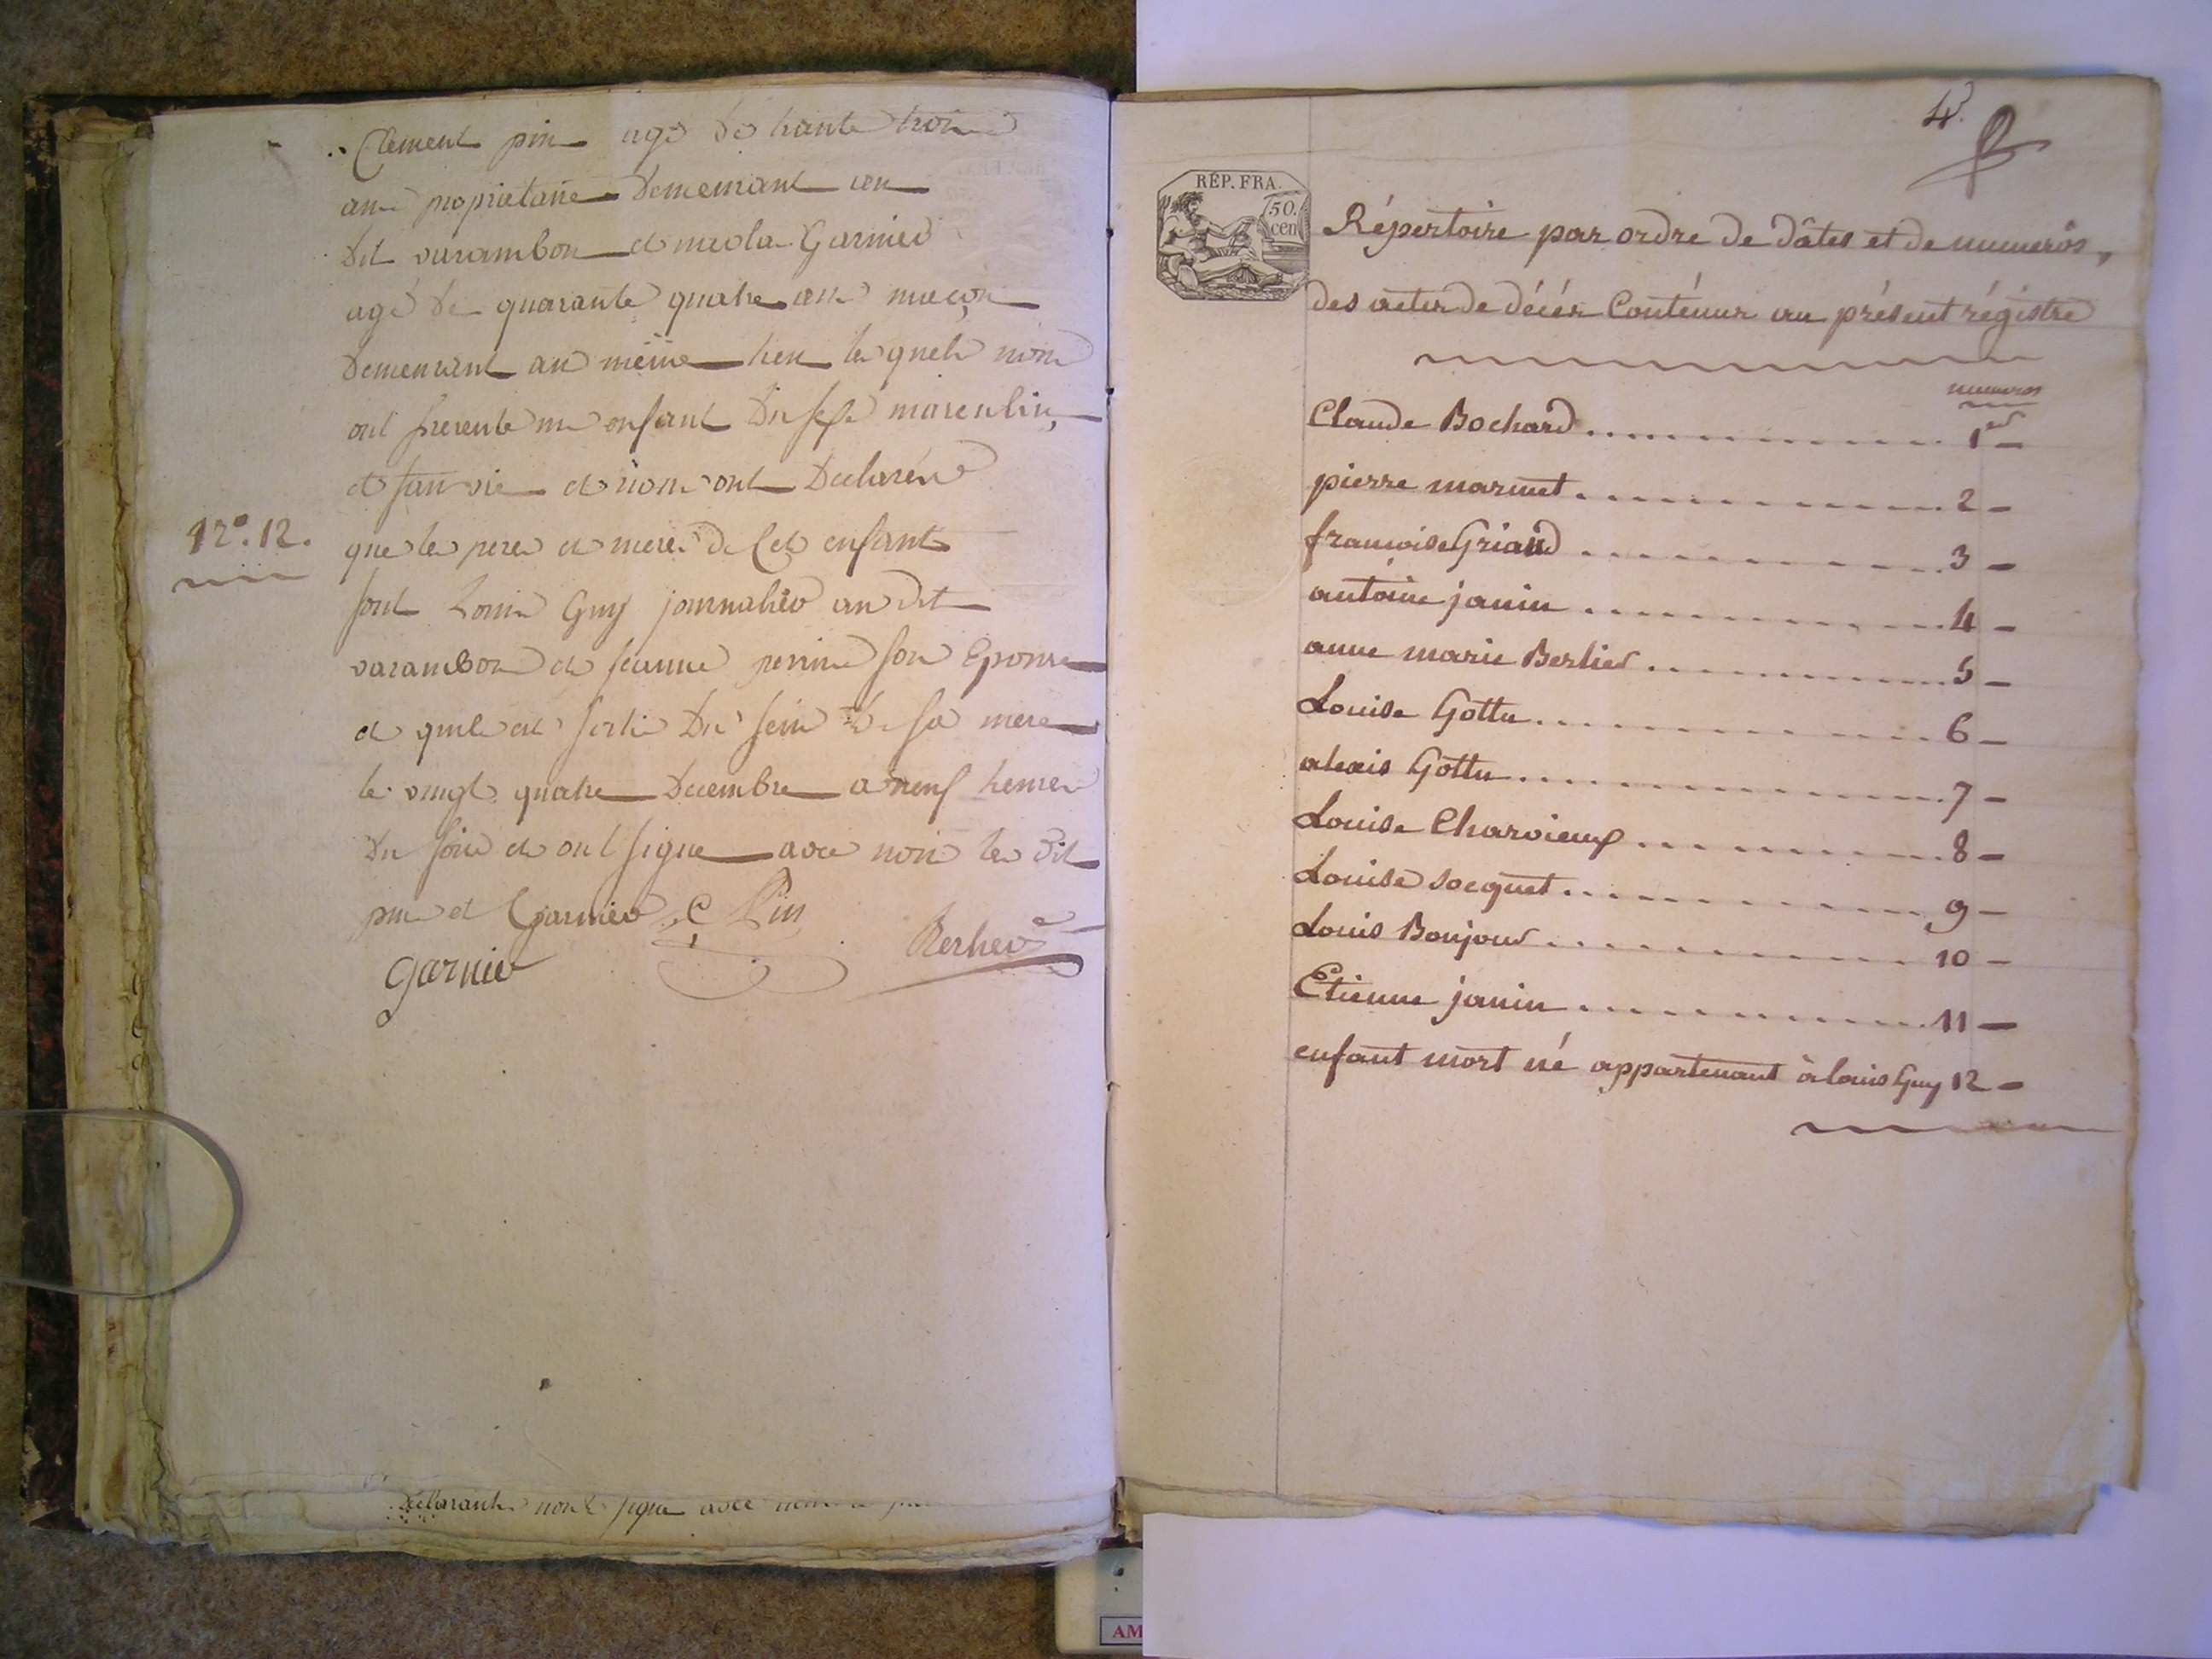 Clement pin agé de trante trois
ans proprietaire Demeurant au
dit varambon et nicolas Garnier
agé de quarante quatre ans maçon
Demeurant au même lieu les quels nous
ont presenté un enfant Du sexe masculin,
et sans vie et nous ont Declarés
N°. 12.
que les peres et meres de Cet enfant
sont Louis Guy journalier au dit
varambon et jeanne perrine son Epouse
et quil est sortie Du sein De sa mere
le vingt quatre Decembre a neuf heures
Du soire et ont signe avec nous les dit
pin et Garnier C Pin
Garnier Berlier
Declarants nont signe avec
4.
RÉP. FRA.
50.
cen
Répertoire par ordre de dâtes et de numerôs,
des actes de décés Conténus au présent régistre
numeros
Claude Bochard 1er
pierre marmet 2
francoise Griand 3
antoine janin 4
anne marie Berlier 5
Louise Gottu 6
alexis Gottu 7
Louise Charvieux 8
Louise socquet 9
Louis Bonjour 10
Etienne janin 11
enfant mort né appartenant à louis Guy 12
AM